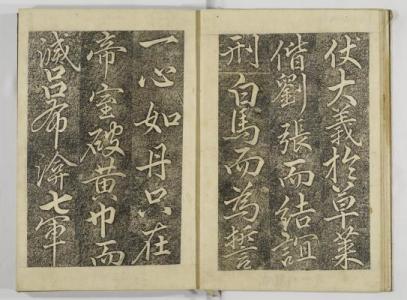 仗大義於草萊
偕劉張而結誼
刑白馬而為誓
一心如丹只在
帝室破黄巾而
滅吕布渰七軍